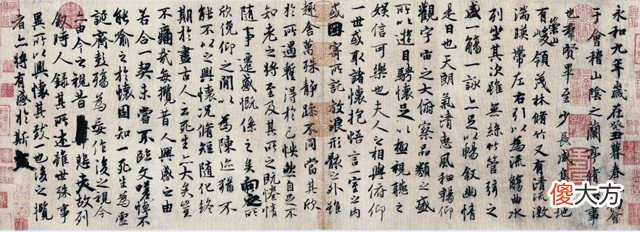 永和九年歲在癸丑暮春之初會
于會稽山陰之蘭亭脩稧事
也群賢畢至少長咸集此地
有崇山峻領茂林脩竹又有清流激
湍暎帶左右引以為流觴曲水
列坐其次雖無絲竹管弦之
盛一觴一詠亦足以暢敘幽情
是日也天朗氣清惠風和暢仰
觀宇宙之大俯察品類之盛
所以遊目騁懷足以極視聽之
娛信可樂也夫人之相與俯仰
一世或取諸懷抱悟言一室之內
或因寄所託放浪形骸之外雖
趣舍萬殊靜躁不同當其欣
於所遇蹔得於己怏然自足不
知老之將至及其所之既惓情
隨事遷感慨係之矣向之所
欣俛仰之閒以為陳迹猶不
能不以之興懷況脩短隨化終
期於盡古人云死生亦大矣豈
不痛哉每攬昔人興感之由
若合一契未嘗不臨文嗟悼不
能喻之於懷固知一死生為虛
誕齊彭殤為妄作後之視今
亦由今之視昔悲夫故列
敘時人錄其所述雖世殊事
異所以興懷其致一也後之攬
者亦將有感於斯文
傻大方